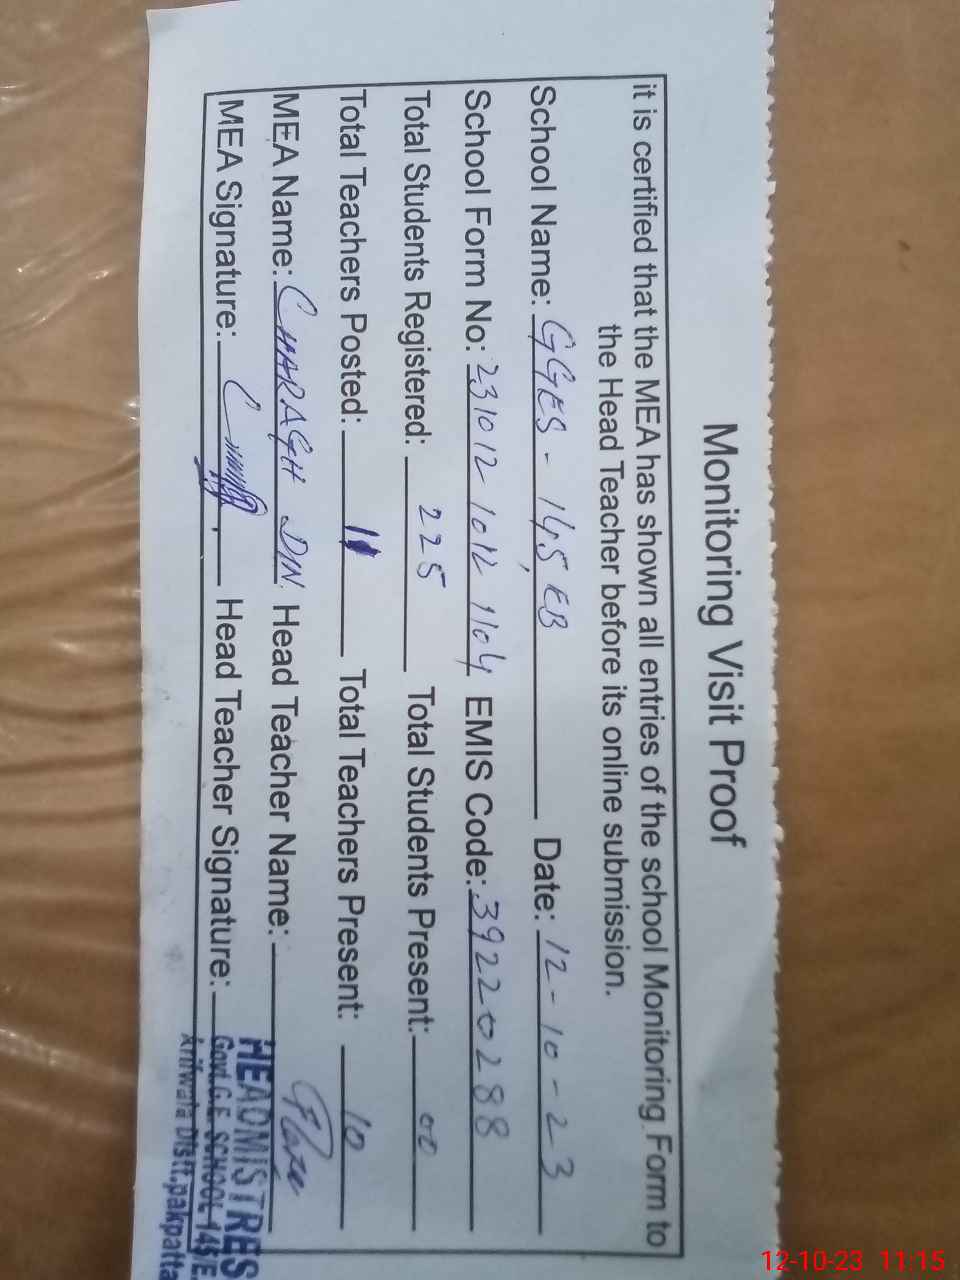 Monitoring Visit Proof
it is certified that the MEA has shown all entries of the school Monitoring Form to
the Head Teacher before its online submission.
School Name: GGES - 145 EB Date: 12-10-23
School Form No: 231012 1012 1104 EMIS Code: 39220288
Total Students Registered: 225 Total Students Present: 00
Total Teachers Posted: 11 Total Teachers Present: 10
MEA Name: CHARAGH DIN. Head Teacher Name:
MEA Signature: Head Teacher Signature:
HEADMISTRES
Govt.G.E. SCHOOL 145/E.
Arifwala Distt.pakpatta
12-10-23 11:15